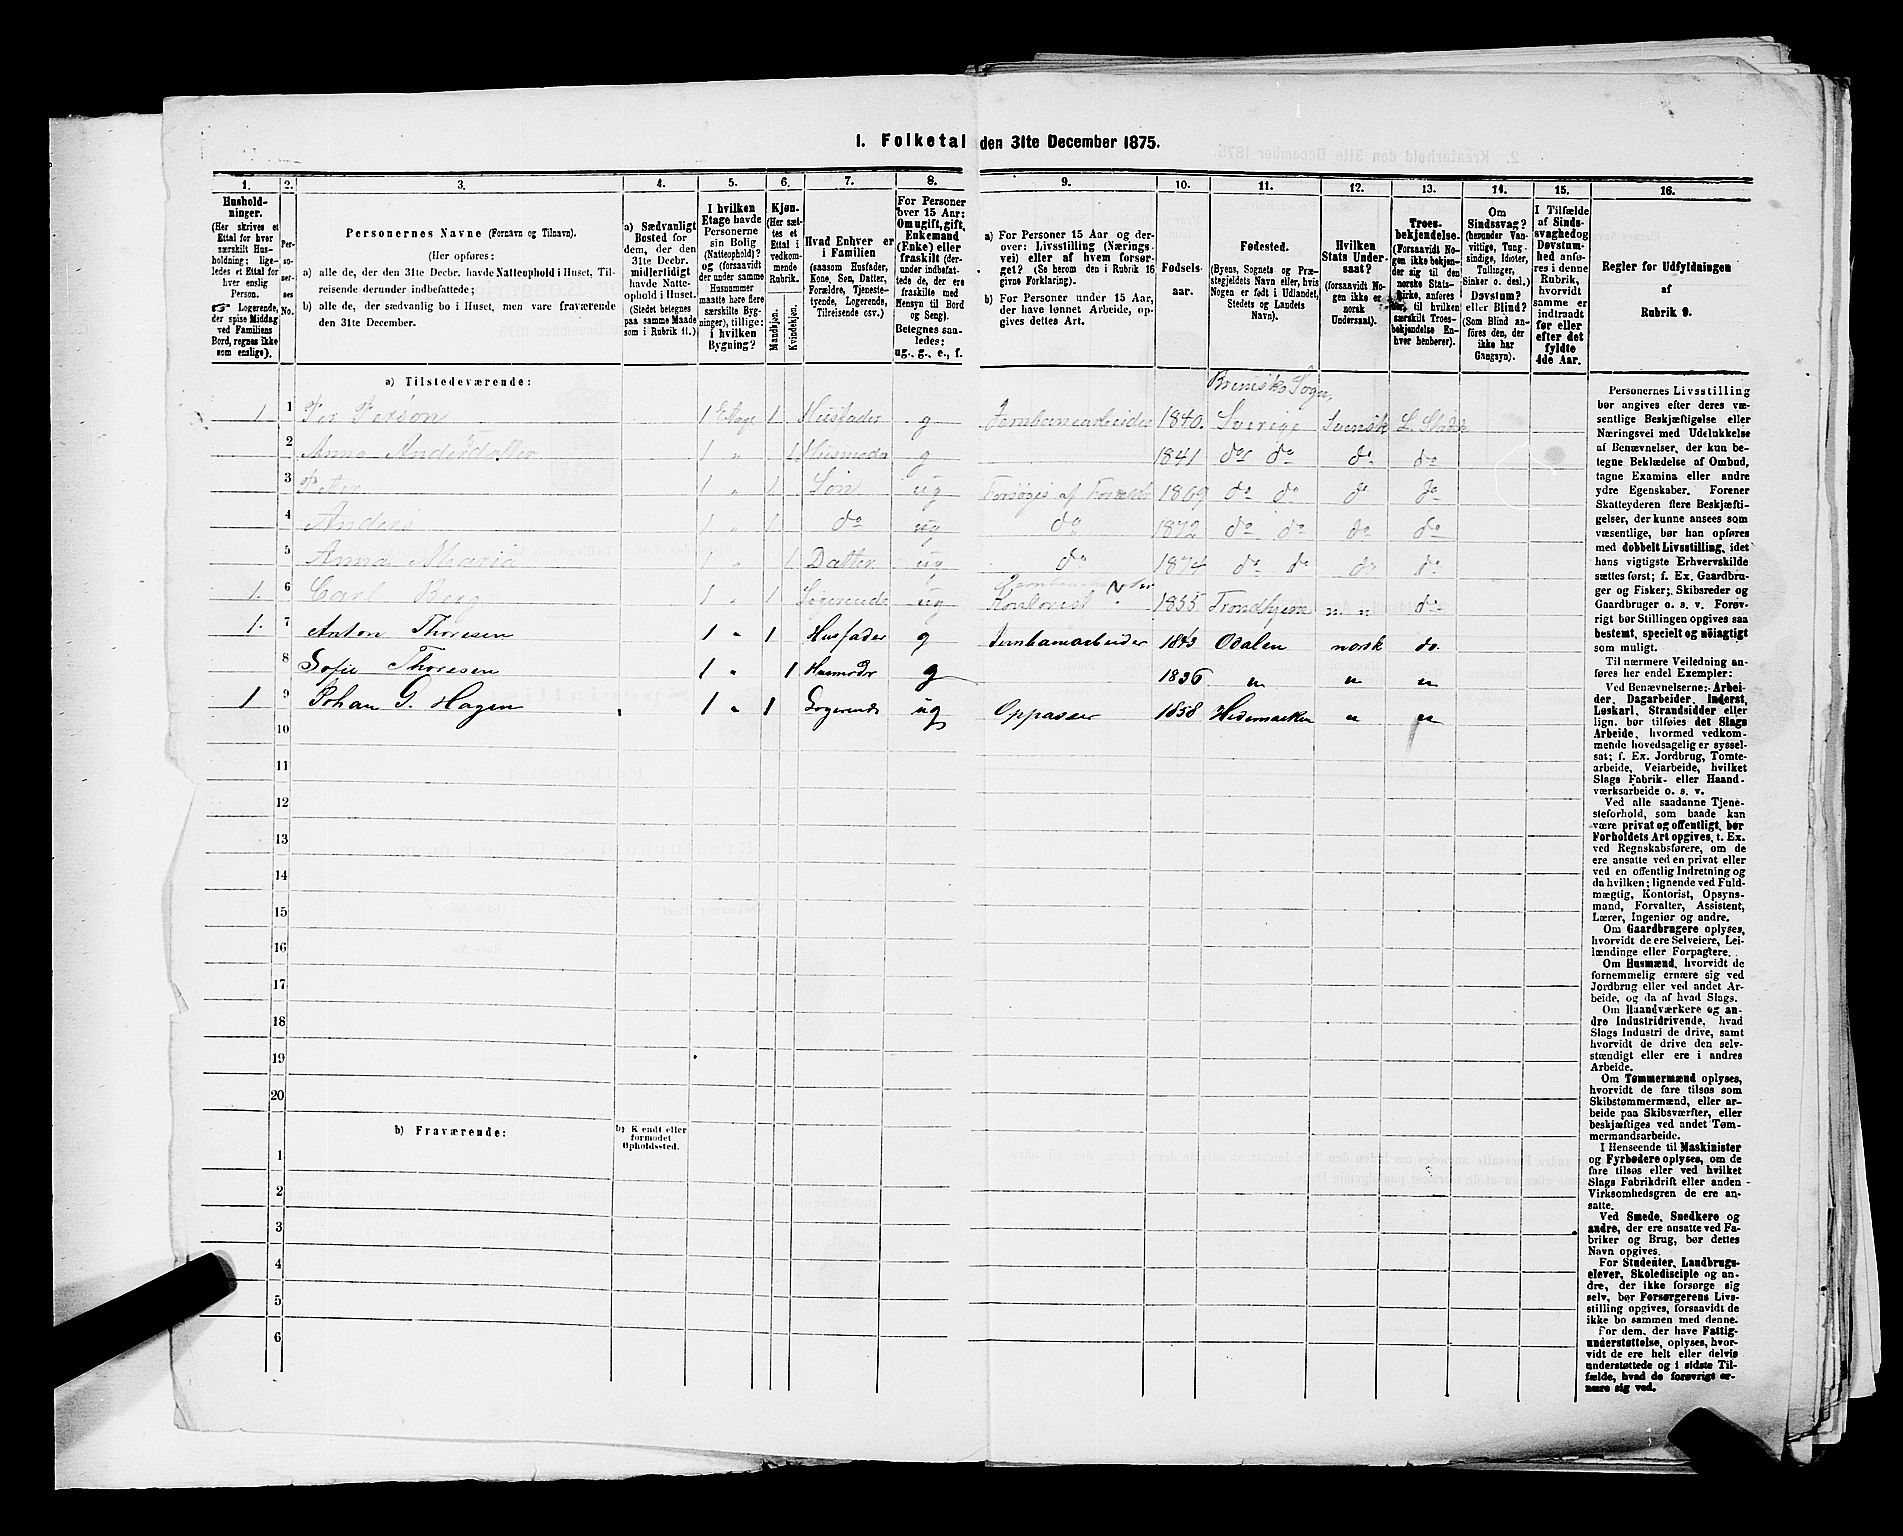 1. Folketal den 31te December 1875.
1. 2. 3. 4. 5. 6. 7. 8. 9. 10. 11. 12. 13. 14. 15. 16.
Hushold-
ninger.
(Her skrives et
Ettal for hver
særskilt Hus-
holdning; lige-
ledes et Ettal for
hver enslig
Person.
☞ Logerende,
der spise Middag
ved Familiens
Bord, regnes ikke
som enslige).
Per-
so-
ner-
nes
No.
Personernes Navne (Fornavn og Tilnavn).
(Her opføres:
a) alle de, der den 31te Decbr. havde Natteophold i Huset, Til-
reisende derunder indbefattede;
b) alle de, der sædvanlig bo i Huset, men vare fraværende
den 31te December.
a) Sædvanligt
Bosted for
dem, der den
31te Decbr.
midlertidigt
havde Natte-
ophold i Huset.
(Stedet betegnes
paa samme Maade
som i Rubrik 11.)
I hvilken
Etage havde
Personerne
sin Bolig
(Natteophold)?
og (forsaavidt
der under samme
Husnummer
maatte høre flere
særskilte Byg-
ninger), tillige:
i hvilken
Bygning?
Kjøn.
(Her sæt-
tes et
Ettal i
vedkom-
mende
Rubrik.
Mandkjøn.
Kvindekjøn.
Hvad Enhver er
i Familien
(saasom Husfader,
Kone, Søn, Datter,
Forældre, Tjeneste-
tyende, Logerende,
Tilreisende osv.)
For Personer
over 15 Aar:
Om ugift, gift,
Enkemand
(Enke) eller
fraskilt (der-
under indbefat-
tede de, der ere
fraskilte med
Hensyn til Bord
og Seng).
Betegnes saa-
ledes:
ug., g., e., f.
a) For Personer 15 Aar og der-
over: Livsstilling (Nærings-
vei) eller af hvem forsør-
get? (Se herom den i Rubrik 16
givne Forklaring).
b) For Personer under 15 Aar,
der have lønnet Arbeide, op-
gives dettes Art.
Fødsels-
aar.
Fødested.
(Byens, Sognets og Præ-
stegjeldets Navn eller, hvis
Nogen er født i Udlandet,
Stedets og Landets
Navn).
Hvilken
Stats Under-
saat?
(forsaavidt No-
gen ikke er
norsk
Undersaat).
Troes-
bekjendelse.
(Forsaavidt No-
gen ikke bekjen-
der sig til den
norske Stats-
kirke, anføres
her, til hvilken
særskilt Troes-
bekjendelse En-
hver henhører).
Om
Sindssvag?
(herunder Van-
vittige, Tung-
sindige, Idioter,
Tullinger,
Sinker o. desl.)
Døvstum?
eller Blind?
(Som Blind an-
føres den, der
ikke har
Gangsyn).
I Tilfælde
af Sinds-
svaghed og
Døvstum-
hed, anfø-
res i denne
Rubrik,
hvorvidt
samme er
indtraadt
før eller
efter det
fyldte
4de Aar.
Regler for Udfyldningen
af
Rubrik 9.
a) Tilstedeværende:
Sogn,
1 1 Per Person 1 Etage 1 Husfader g Jernbanearbeider 1840. Sverige Svensk
2 Anna Andersdatter 1 " 1 Husmoder g 1841 do do do do
3 Petter 1 " 1 Søn ug Forsørges af 1869 do do do do
4 Anders 1 1 do ug do 1872 do do do do
5 Anna Maria 1 " 1 Datter ug do 1874 do do do do
1. 6 Carl Berg 1 " 1 Logerende ug Kontorist 1855 Trondhjem " " do
1. 7 Anton Thoresen 1 " 1 Husfader g Jernbanarbeider 1843 Odalen norsk do.
8 Sofie Thoresen 1 " 1 Husmoder g 1836 " " "
1 9 Johan G. Hagen 1 " 1 Logerende ug Oppasser 1858 Hedemarken " "
10
11
12
13
14
15
16
17
18
19
20
b) Fraværende:
b) Kjendt eller
formodet
Opholdssted.
1
2
3
4
5
6
Personernes Livsstilling
bør angives efter deres væ-
sentlige Beskjæftigelse eller
Næringsvei med Udelukkelse
af Benævnelser, der kun be-
tegne Beklædelse af Ombud,
tagne Examina eller andre
ydre Egenskaber. Forener
Skatteyderen flere Beskjæfti-
gelser, der kunne ansees som
væsentlige, bør han opføres
med dobbelt Livsstilling, idet
hans vigtigste Erhvervskilde
sættes først; f. Ex. Gaardbru-
ger og Fisker; Skibsreder og
Gaardbruger o. s. v. Forøv-
rigt bør Stillingen opgives saa
bestemt, specielt og nøiagtigt
som muligt.
Til nærmere Veiledning an-
føres her endel Exempler:
Ved Benævnelserne: Arbei-
der, Dagarbeider, Inderst,
Løskarl, Strandsidder eller
lign. bør tilføies det Slags
Arbeide, hvormed vedkom-
mende hovedsagelig er syssel-
sat; f. Ex. Jordbrug, Tomte-
arbeide, Veiarbeide, hvilket
Slags Fabrik- eller Haand-
værksarbeide o. s. v.
Ved alle saadanne Tjene-
steforhold, som baade kan
være privat og offentligt, bør
Forholdets Art opgives, t. Ex.
ved Regnskabsførere, om de
ere ansatte ved en privat eller
ved en offentlig Indretning og
da hvilken; lignende ved Fuld-
mægtig, Kontorist, Opsyns-
mand, Forvalter, Assistent,
Lærer, Ingeniør og andre.
Om Gaardbrugere oplyses,
hvorvidt de ere Selveiere, Lei-
lændinge eller Forpagtere.
Om Husmænd, hvorvidt de
fornemmelig ernære sig ved
Jordbrug eller ved andet Ar-
beide, og da af hvad Slags.
Om Haandværkere og an-
dre Industridrivende, hvad
Slags Industri de drive, samt
hvorvidt de drive den selv-
stændigt eller ere i andres
Arbeide.
Om Tømmermænd oplyses,
hvorvidt de fare tilsøs som
Skibstømmermænd, eller ar-
beide paa Skibsværfter, eller
beskjæftiges ved andet Tøm-
mermandsarbeide.
I Henseende til Maskinister
og Fyrbødere oplyses, om de
fare tilsøs eller ved hvilket
Slags Fabrikdrift eller anden
Virksomhedsgren de ere an-
satte.
Ved Smede, Snedkere og
andre, der ere ansatte ved Fa-
briker og Brug, bør dettes
Navn opgives.
For Studenter, Landbrugs-
elever, Skoledisciple og an-
dre, der ikke forsørge sig
selv, bør Forsørgerens Livs-
stilling opgives, forsaavidt de
ikke bo sammen med denne.
For dem, der have Fattig-
understøttelse, oplyses, hvor-
vidt de ere helt eller delvis
understøttede og i sidste Til-
fælde, hvad de forøvrigt er-
nære sig ved.